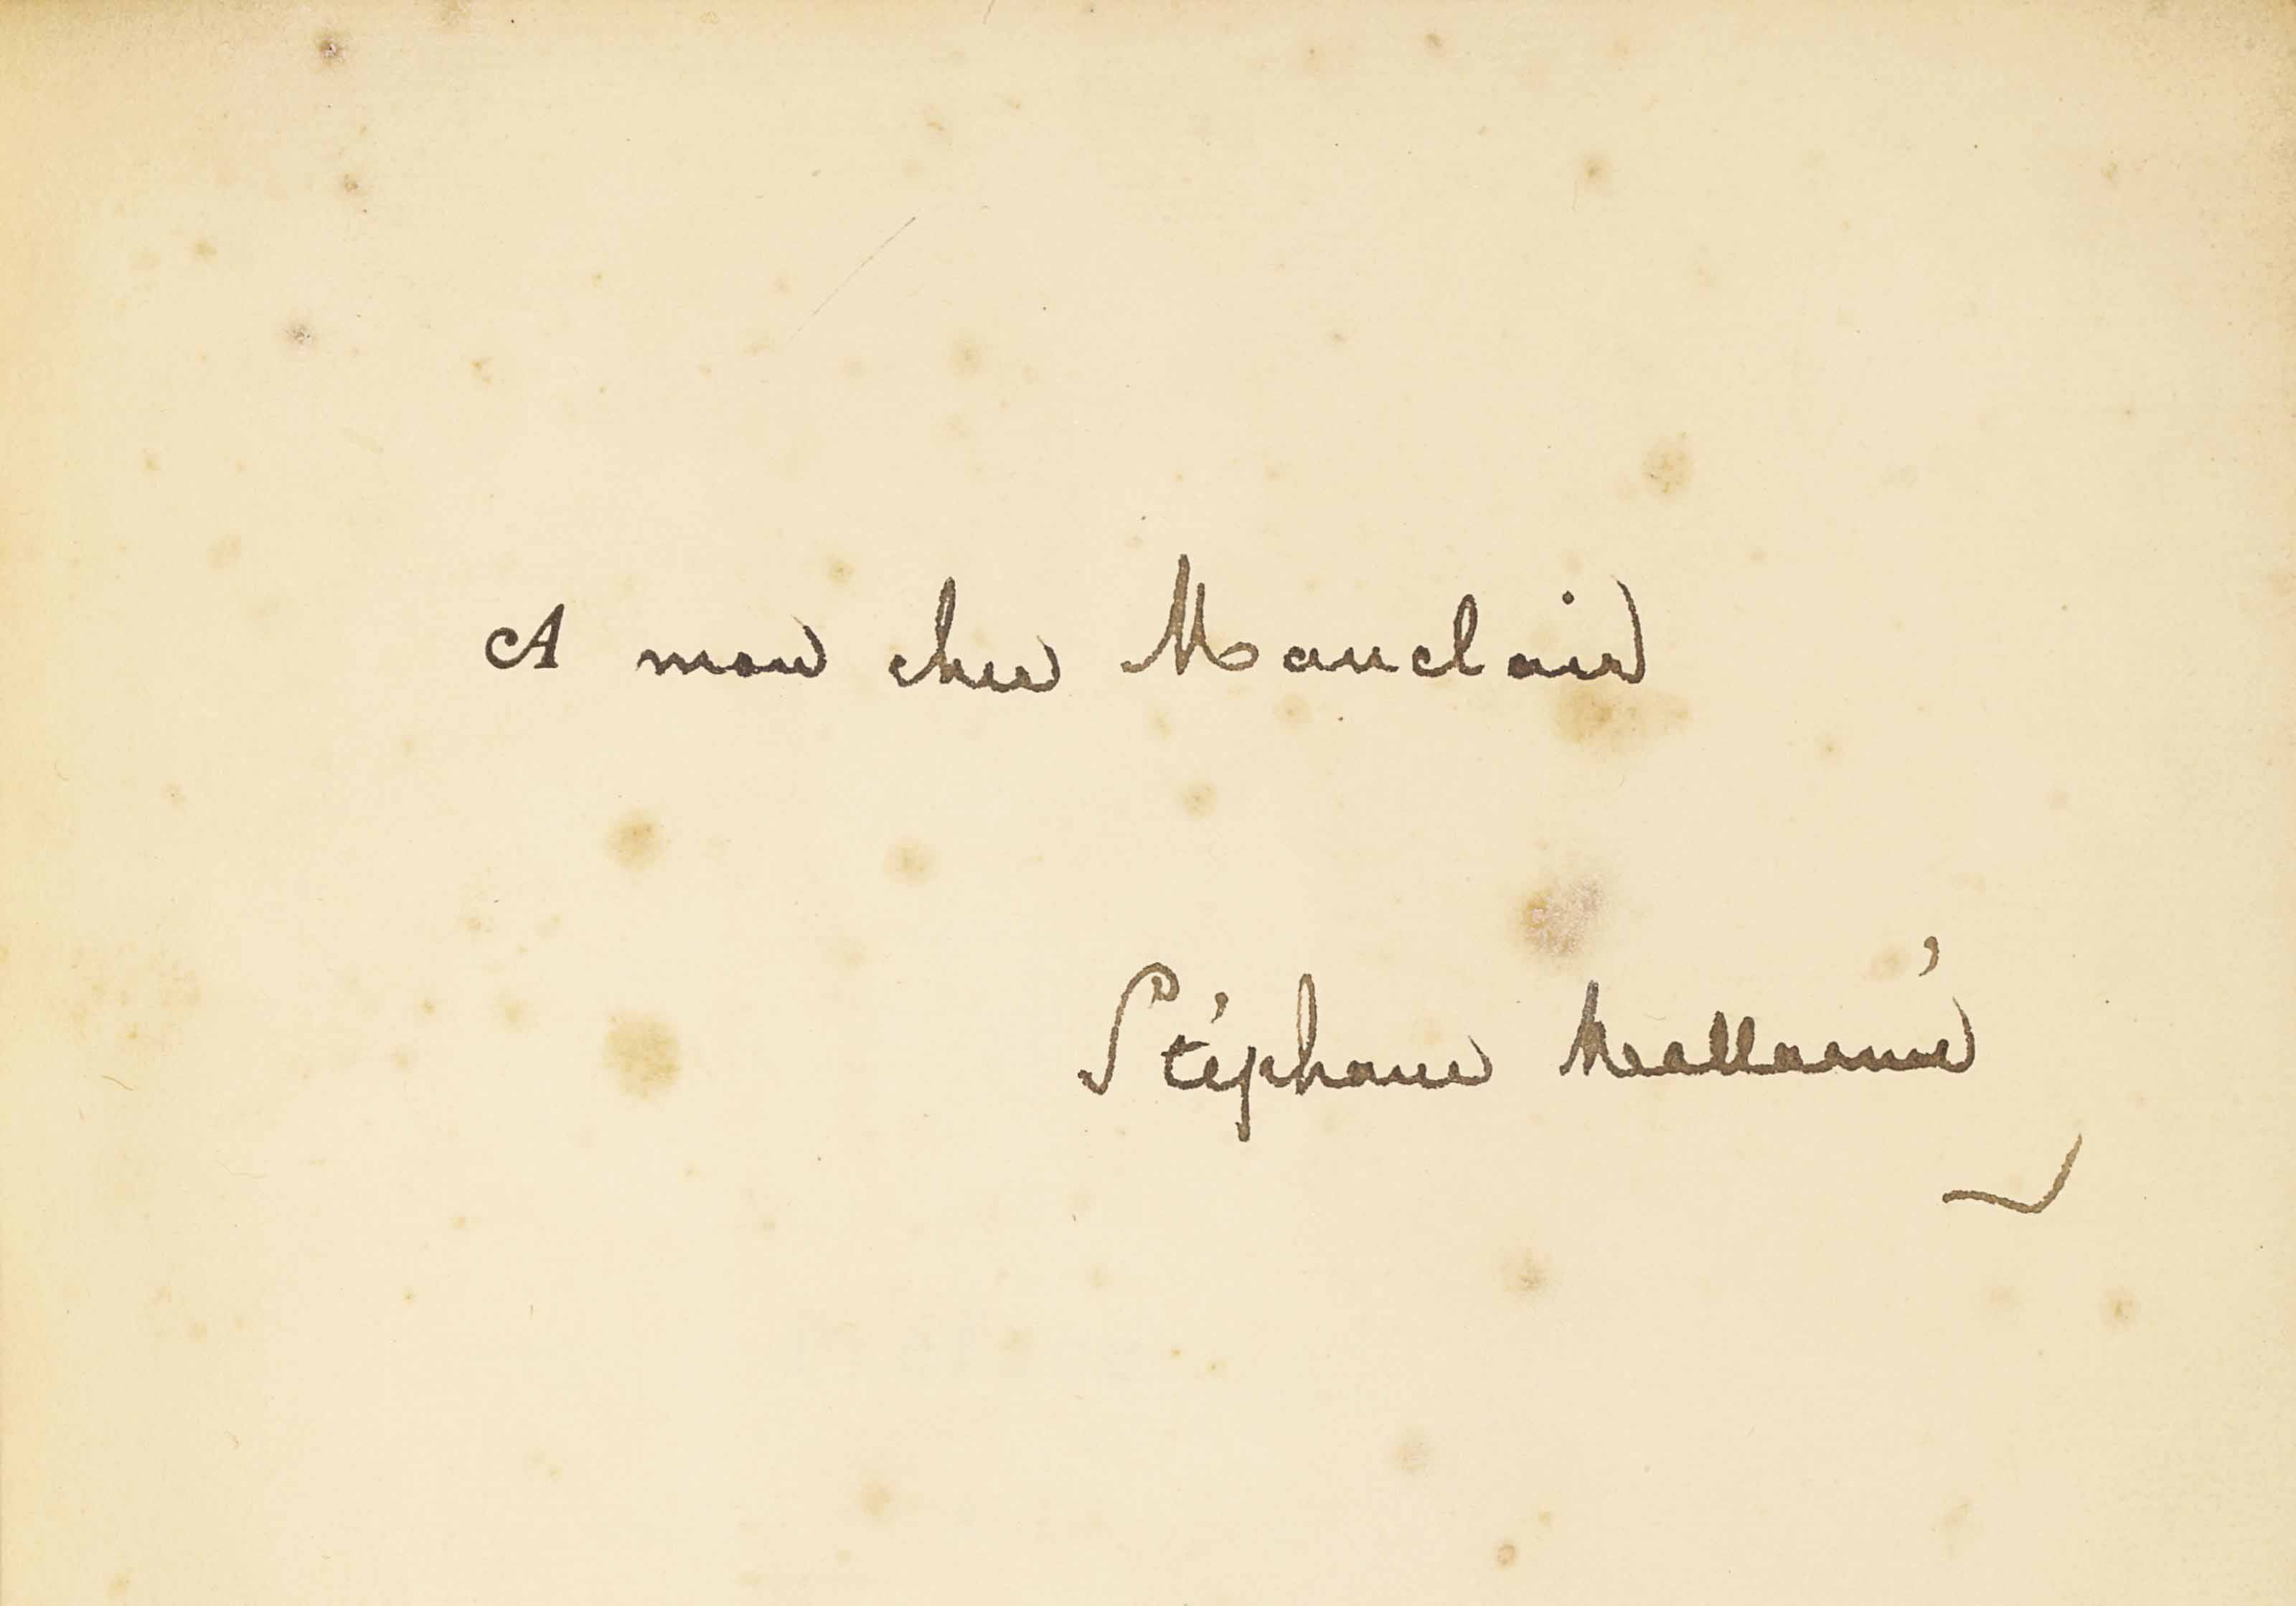 A mon cher Mauclair
Stéphane Mallarmé